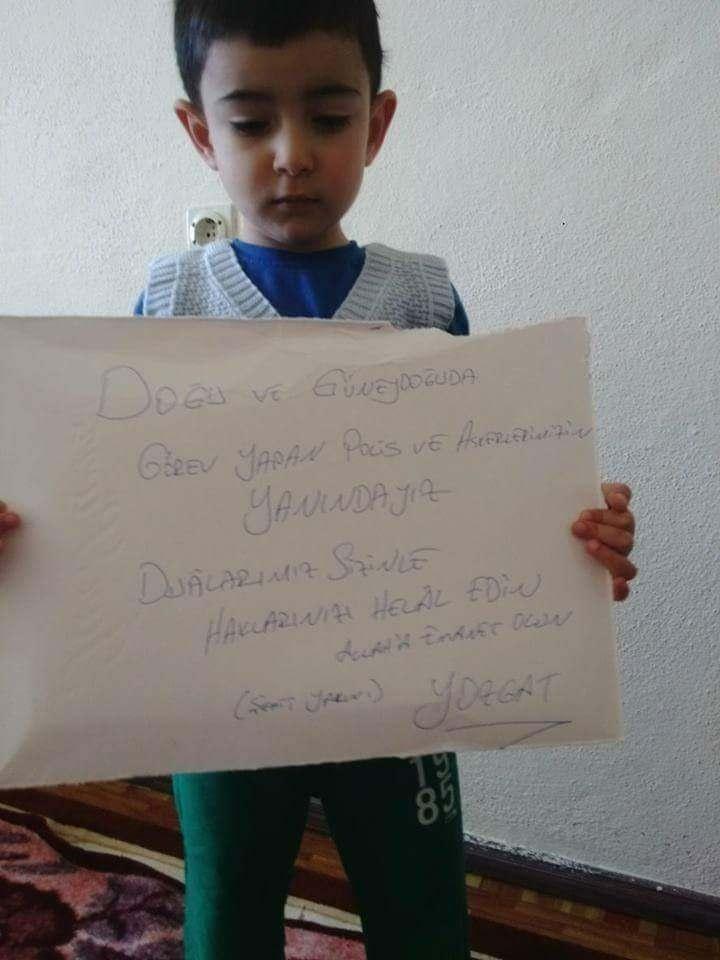 DOĞU VE GÜNEYDOĞUDA
GÖREV YAPAN POLİS VE ASKERLERİMİZİN
YANINDAYIZ
DUALARIMIZ SİZİNLE
HAKLARINIZI HELÂL EDİN
ALLAH'A EMANET OLUN
YOZGAT